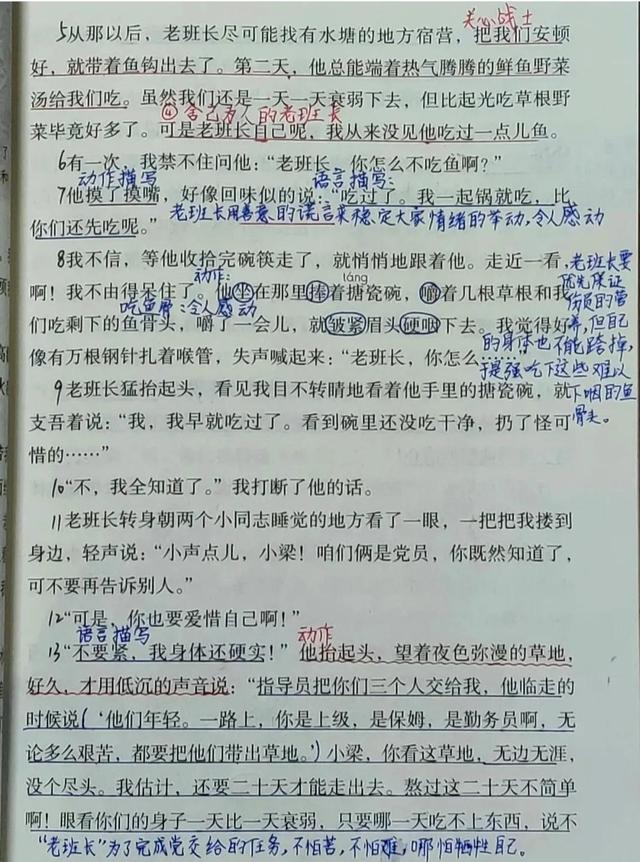 关心战士
5从那以后，老班长尽可能找有水塘的地方宿营，把我们安顿
好，就带着鱼钩出去了。第二天，他总能端着热气腾腾的鲜鱼野菜
汤给我们吃。虽然我们还是一天一天衰弱下去，但比起光吃草根野
④舍己为人的老班长
菜毕竟好多了。可是老班长自己呢，我从来没见他吃过一点儿鱼。
6有一次，我禁不住问他：“老班长，你怎么不吃鱼啊？”
动作描写 语言描写：
7他摸了摸嘴，好像回味似的说：“吃过了。我一起锅就吃，比
你们还先吃呢。”
老班长用善意的谎言来稳定大家情绪的举动，令人感动
8我不信，等他收拾完碗筷走了，就悄悄地跟着他。走近一看，
动作： láng
啊！我不由得呆住了。他坐在那里捧着搪瓷碗，嚼着几根草根和我
吃鱼骨：令人感动
们吃剩下的鱼骨头，嚼了一会儿，就皱紧眉头硬咽下去。我觉得好
像有万根钢针扎着喉管，失声喊起来：“老班长，你怎么……”
老班长要
优先保证
伤员的营
养，但自己
的身体也不能垮掉，
勉强吃下这些难以
下咽的鱼
骨头。
9老班长猛抬起头，看见我目不转睛地看着他手里的搪瓷碗，就
支吾着说：“我，我早就吃过了。看到碗里还没吃干净，扔了怪可
惜的……”
10“不，我全知道了。”我打断了他的话。
11老班长转身朝两个小同志睡觉的地方看了一眼，一把把我搂到
身边，轻声说：“小声点儿，小梁！咱们俩是党员，你既然知道了，
可不要再告诉别人。”
12“可是，你也要爱惜自己啊！”
语言描写 动作
13“不要紧，我身体还硬实！”他抬起头，望着夜色弥漫的草地，
好久，才用低沉的声音说：“指导员把你们三个人交给我，他临走的
时候说（‘他们年轻。一路上，你是上级，是保姆，是勤务员啊，无
论多么艰苦，都要把他们带出草地。’）小梁，你看这草地，无边无涯，
没个尽头。我估计，还要二十天才能走出去。熬过这二十天不简单
啊！眼看你们的身子一天比一天衰弱，只要哪一天吃不上东西，说不
“老班长”为了完成党交给的任务，不怕苦，不怕难，哪怕牺牲自己。